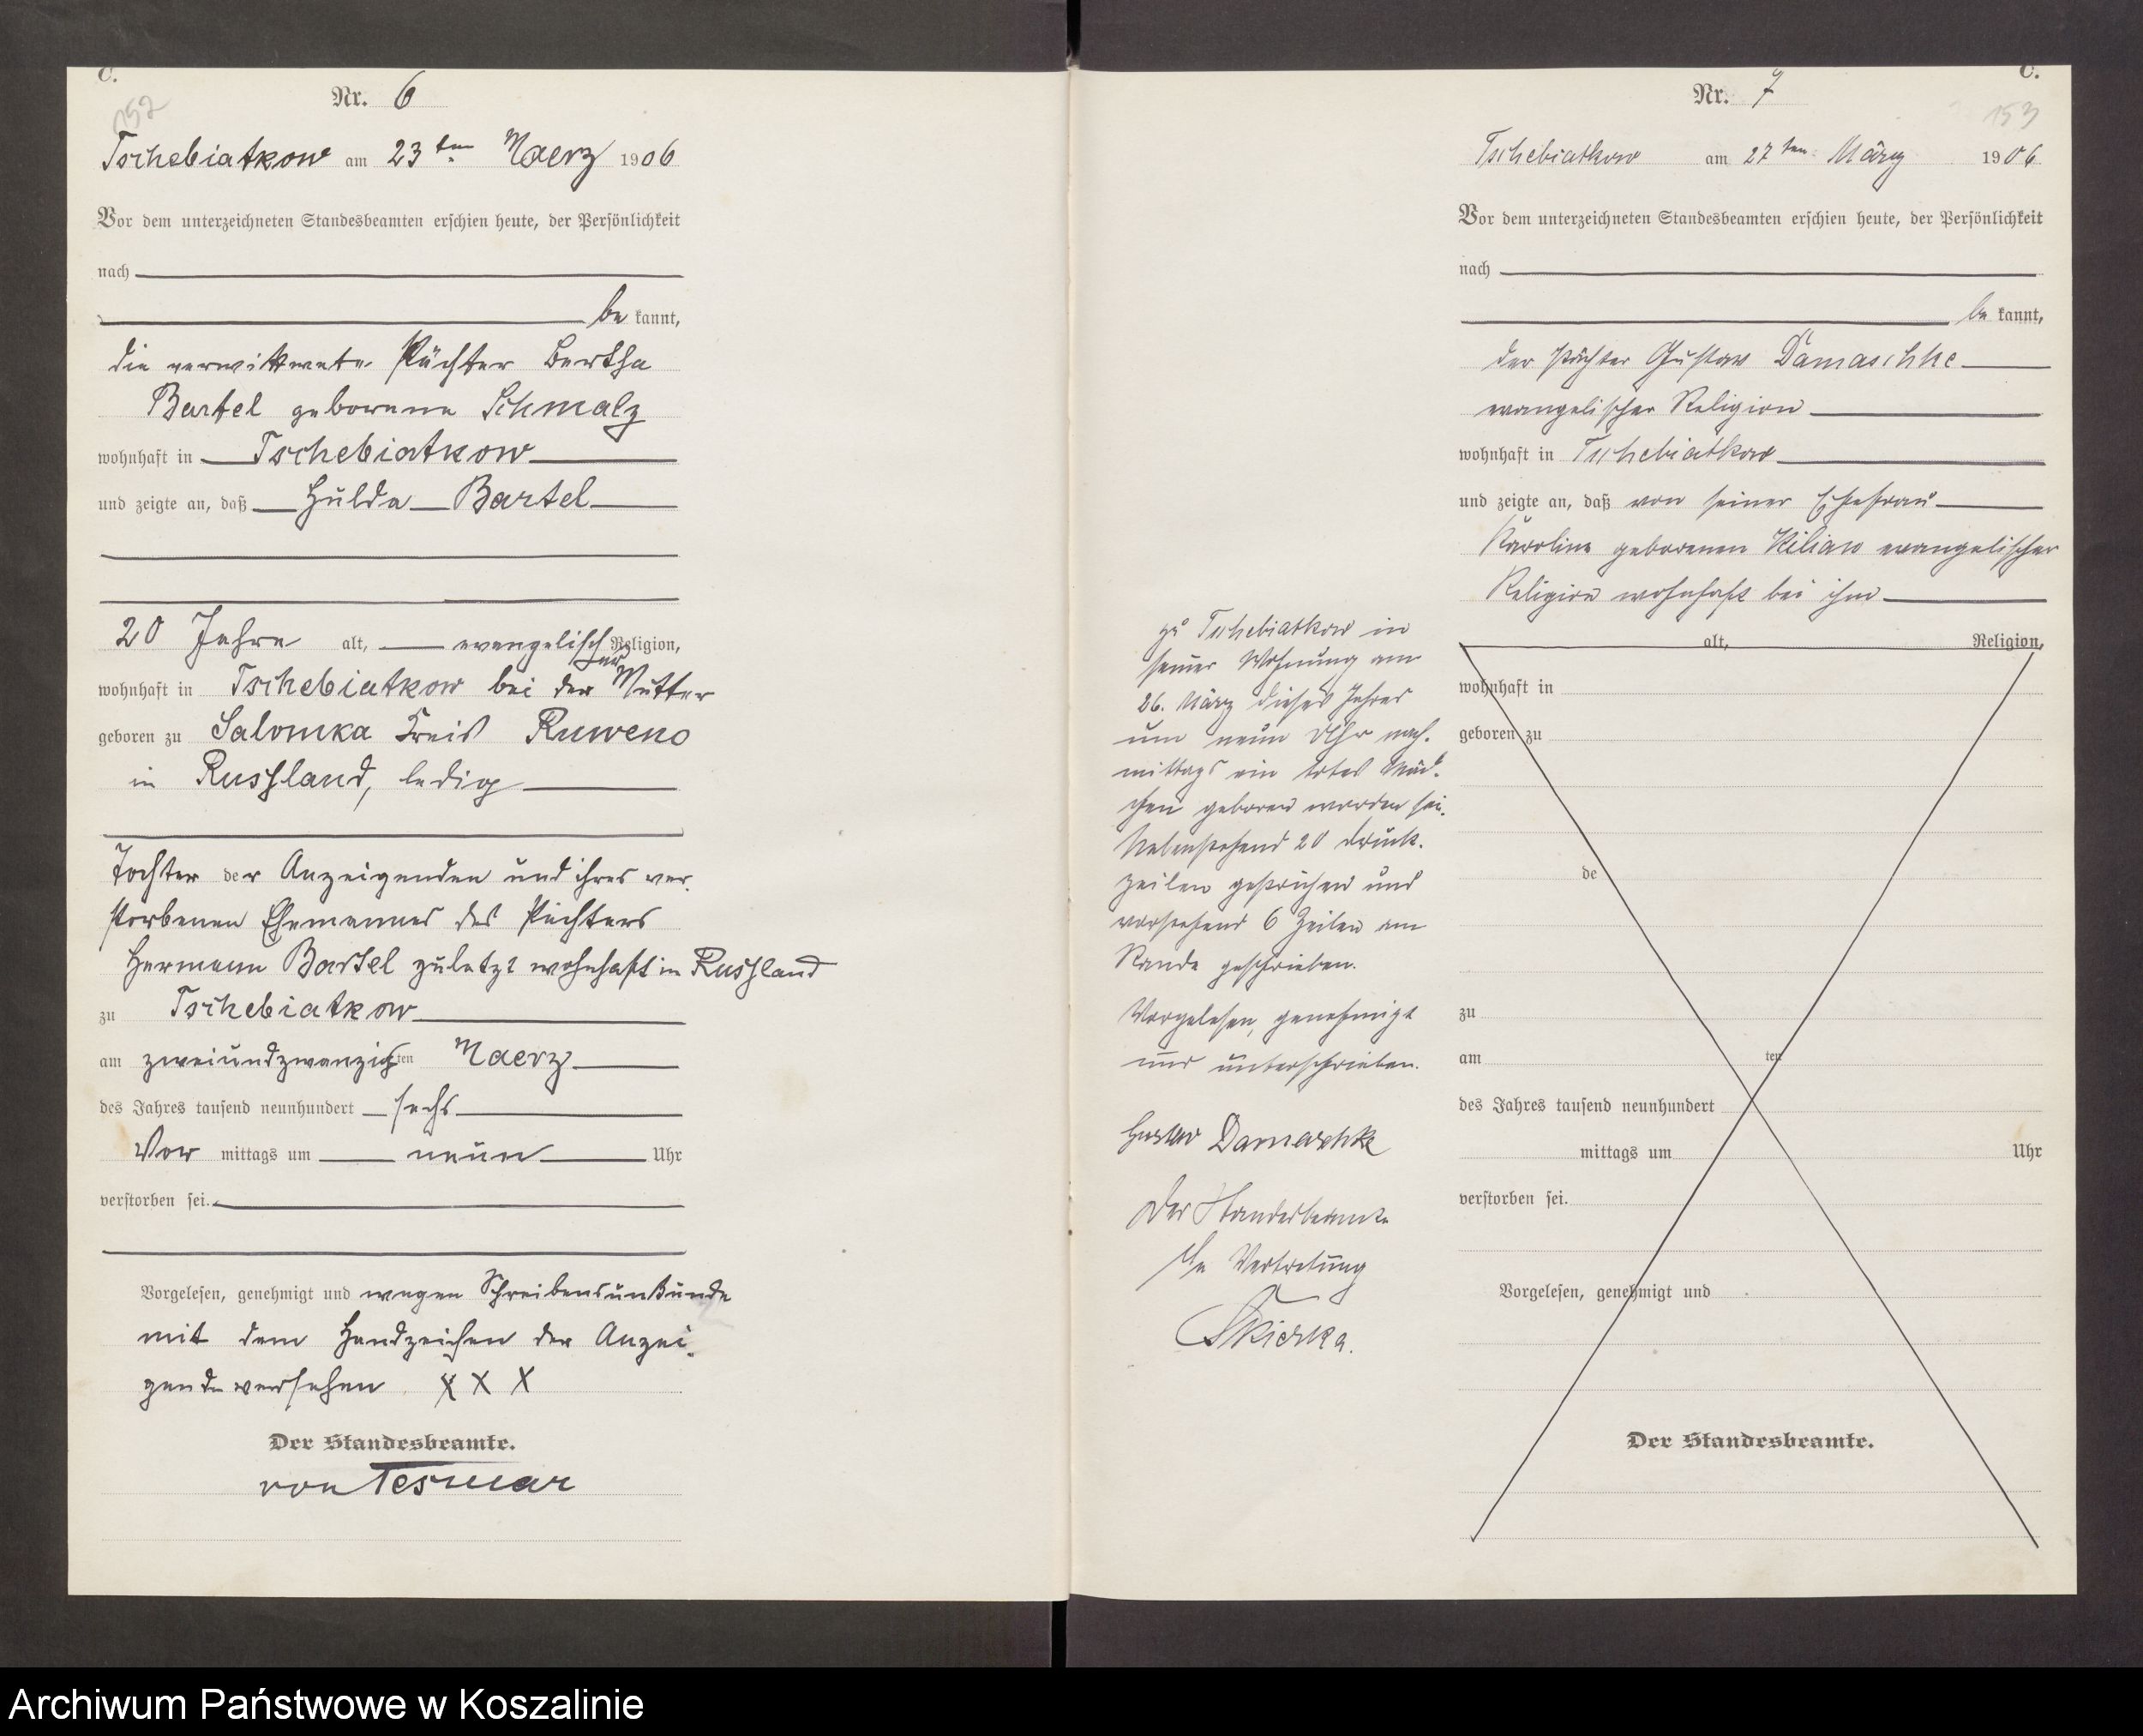 C.
152
Nr. 6
Tschebiatkow am 23ten Maerz 1906
Vor dem unterzeichneten Standesbeamten erschien heute, der Persönlichkeit
nach
be kannt,
die verwittwete Pächter Bertha
Bartel geborene Schmalz
wohnhaft in Tschebiatkow
und zeigte an, daß Hulda Bartel
20 Jahre alt, evangelischer Religion,
wohnhaft in Tschebiatkow bei der Mutter
geboren zu Salomka Kreis Ruweno
in Russland, ledig
Tochter der Anzeigenden und ihres ver-
storbenen Ehemannes des Pächters
Hermann Bartel zuletzt wohnhaft in Russland
zu Tschebiatkow
am zweiundzwanzigsten Maerz
des Jahres tausend neunhundert sechs
Vor mittags um neun Uhr
verstorben sei.
Vorgelesen, genehmigt und wegen Schreibensunkunde
mit dem Handzeichen der Anzei-
gende versehen XXX
Der Standesbeamte.
von Tesmar
C.
153
Nr. 7
Tschebiatkow am 27ten März 1906
Vor dem unterzeichneten Standesbeamten erschien heute, der Persönlichkeit
nach
be kannt,
der Pächter Gustav Damaschke
evangelischer Religion
wohnhaft in Tschebiatkow
und zeigte an, daß von seiner Ehefrau
Karoline geborenen Kilian evangelischer
Religion wohnhaft bei ihm
zu Tschebiatkow in
seiner Wohnung am
26. März dieses Jahres
um neun Uhr nach-
mittags ein totes Mäd-
chen geboren worden sei.
Nebenstehend 20 Druck-
zeilen gestrichen und
vorstehend 6 Zeilen am
Rande geschrieben.
Vorgelesen, genehmigt
und unterschrieben.
Gustav Damaschke
Der Standesbeamte
In Vertretung
Skierka.
alt, Religion,
wohnhaft in
geboren zu
de
zu
am ten
des Jahres tausend neunhundert
mittags um Uhr
verstorben sei.
Vorgelesen, genehmigt und
Der Standesbeamte.
Archiwum Państwowe w Koszalinie